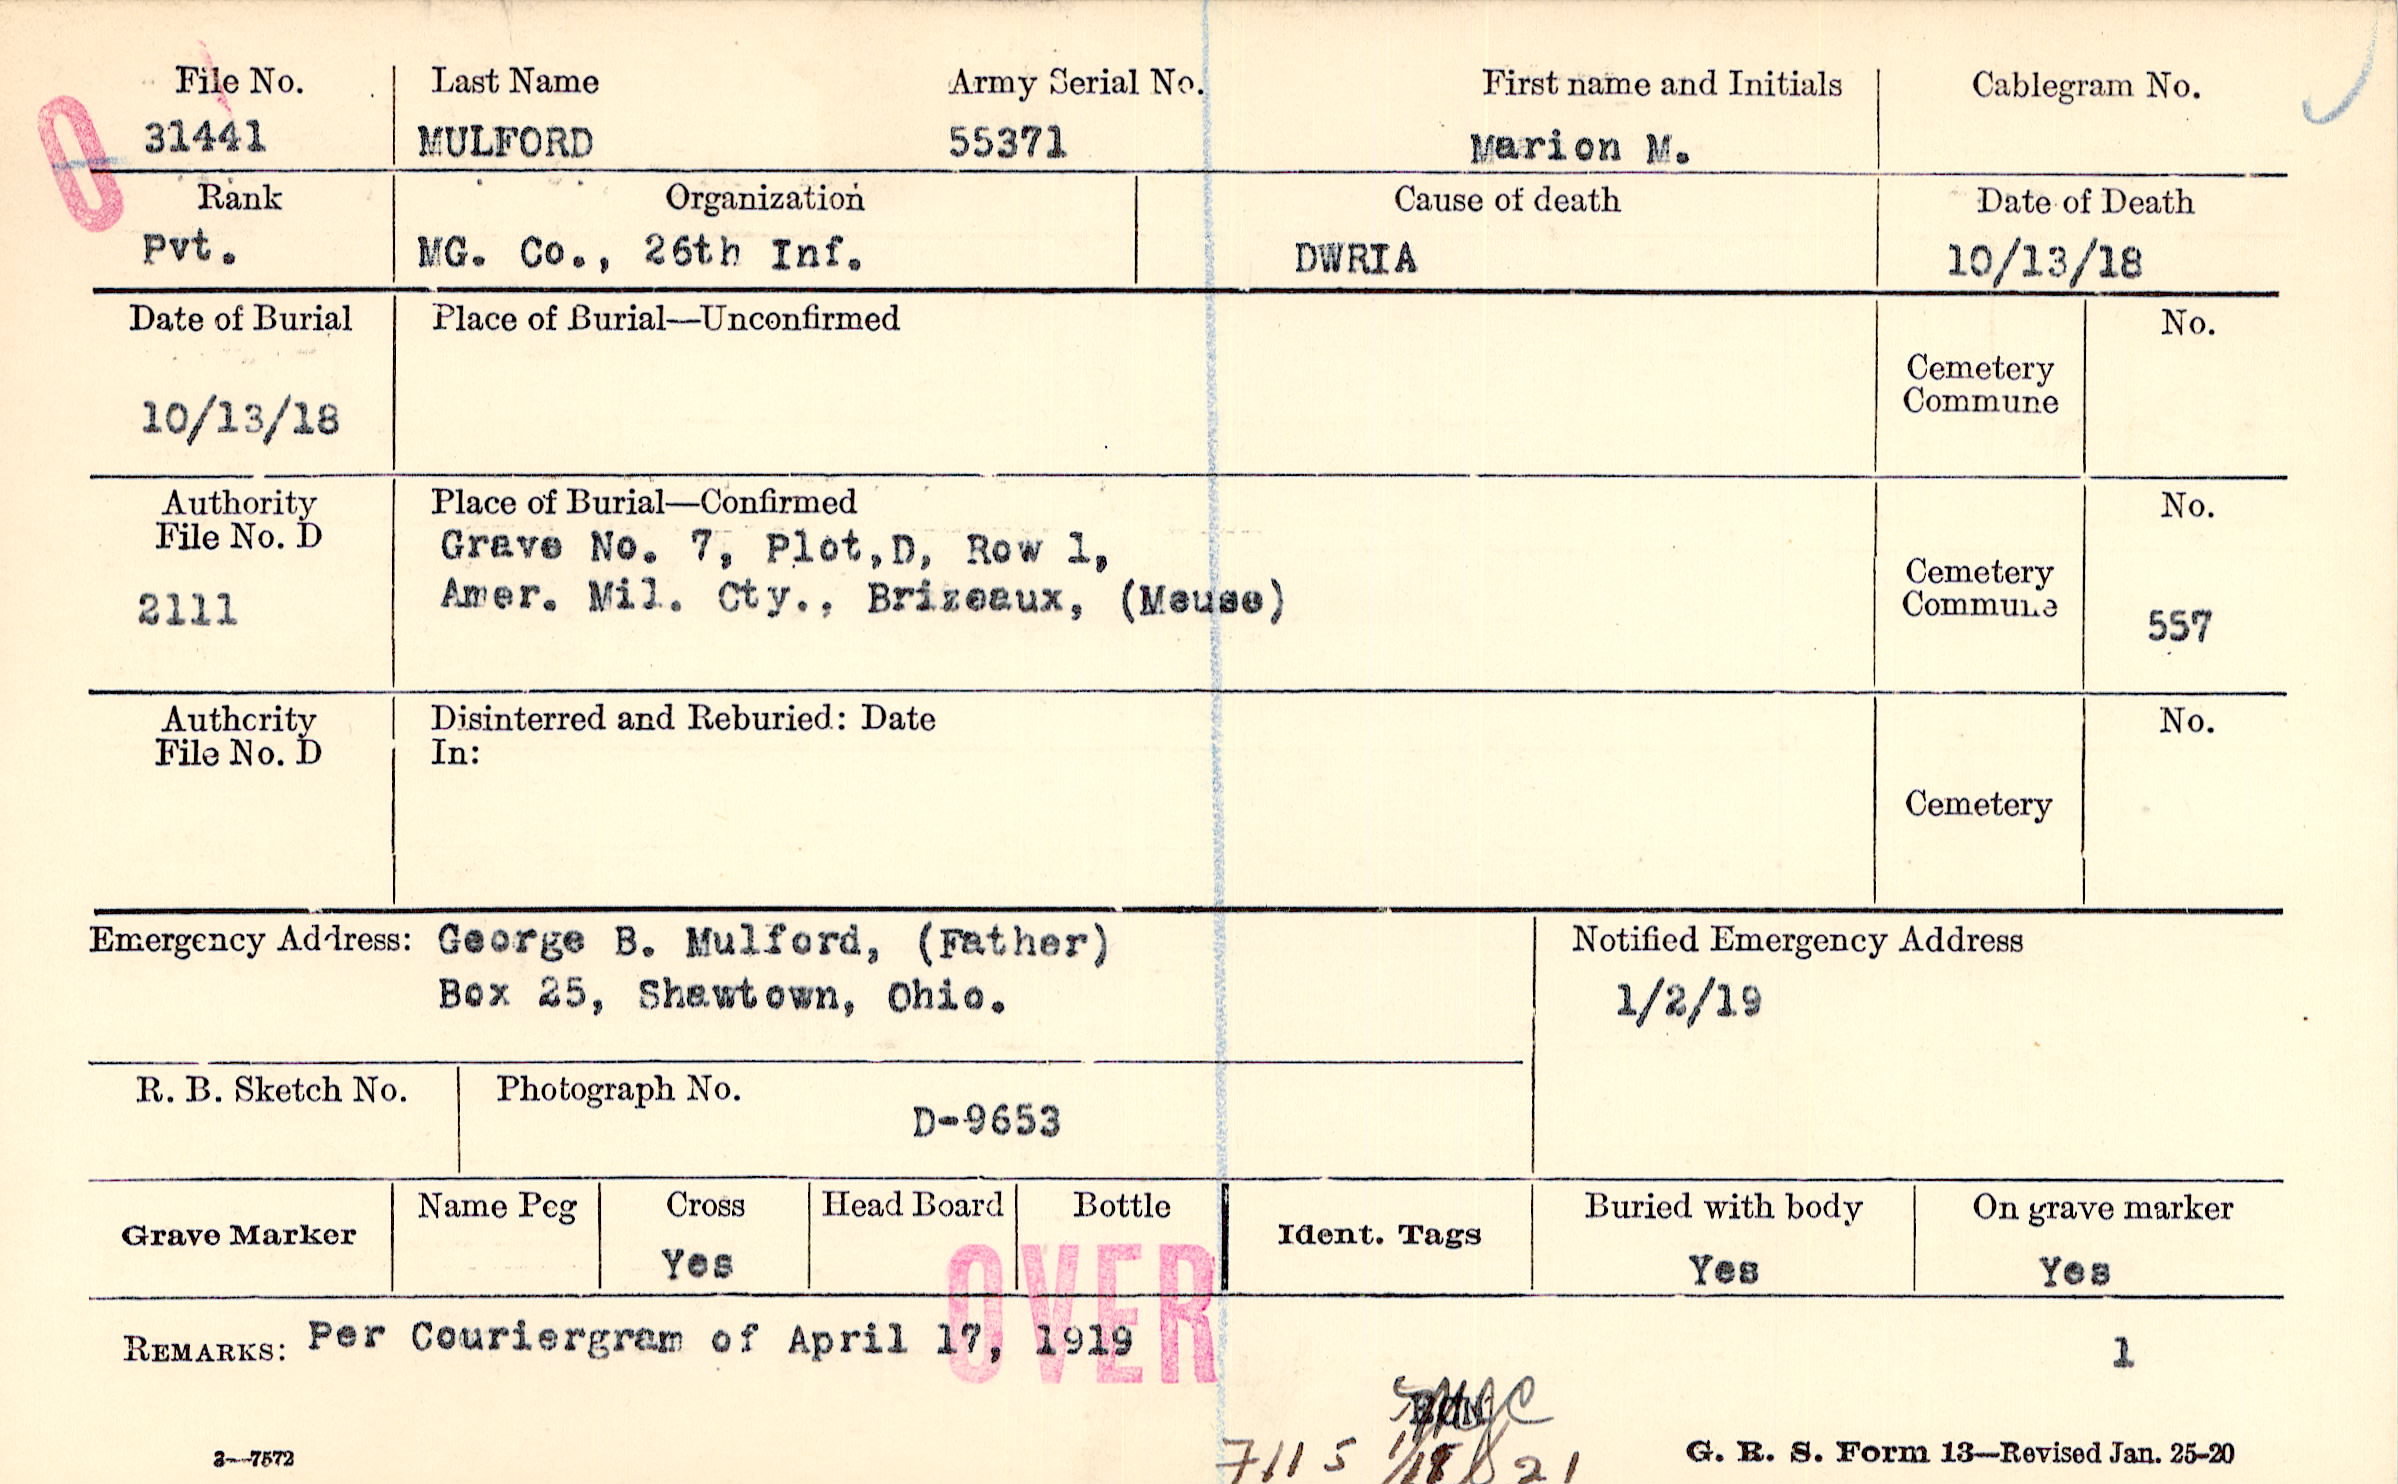 File No. Last Name Army Serial No. First name and Initials Cablegram No.
O 31441 MULFORD 55371 Marion M.
Rank Organization Cause of death Date of Death
Pvt. MG. Co., 26th Inf. DWRIA 10/13/18
Date of Burial Place of Burial—Unconfirmed No.
Cemetery
Commune
10/13/18
Authority Place of Burial—Confirmed No.
File No. D Grave No. 7, Plot,D, Row 1,
Cemetery
2111 Amer. Mil. Cty., Brizeaux, (Meuse) Commune 557
Authority Disinterred and Reburied: Date No.
File No. D In:
Cemetery
Emergency Address: George B. Mulford, (Father) Notified Emergency Address
Box 25, Shawtown, Ohio. 1/2/19
R. B. Sketch No. Photograph No.
D-9653
Name Peg Cross Head Board Bottle Buried with body On grave marker
Grave Marker Ident. Tags
Yes Yes Yes
OVER
REMARKS: Per Couriergram of April 17, 1919 1
3—7572 7115 G. R. S. Form 13—Revised Jan. 25-20